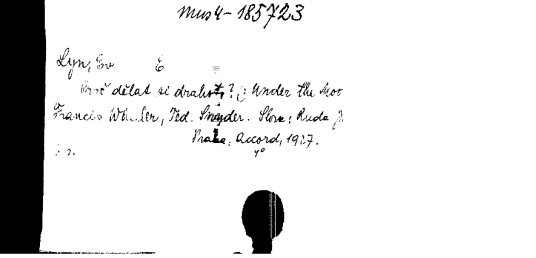 Mus 4 - 185723
Lyn, Ev E
Proč dělat si drahoty? (: Under the Moo
Francis Wheeler, Ted. Snyder. Slova: Ruda J.
Praha: Accord, 1927.
4°